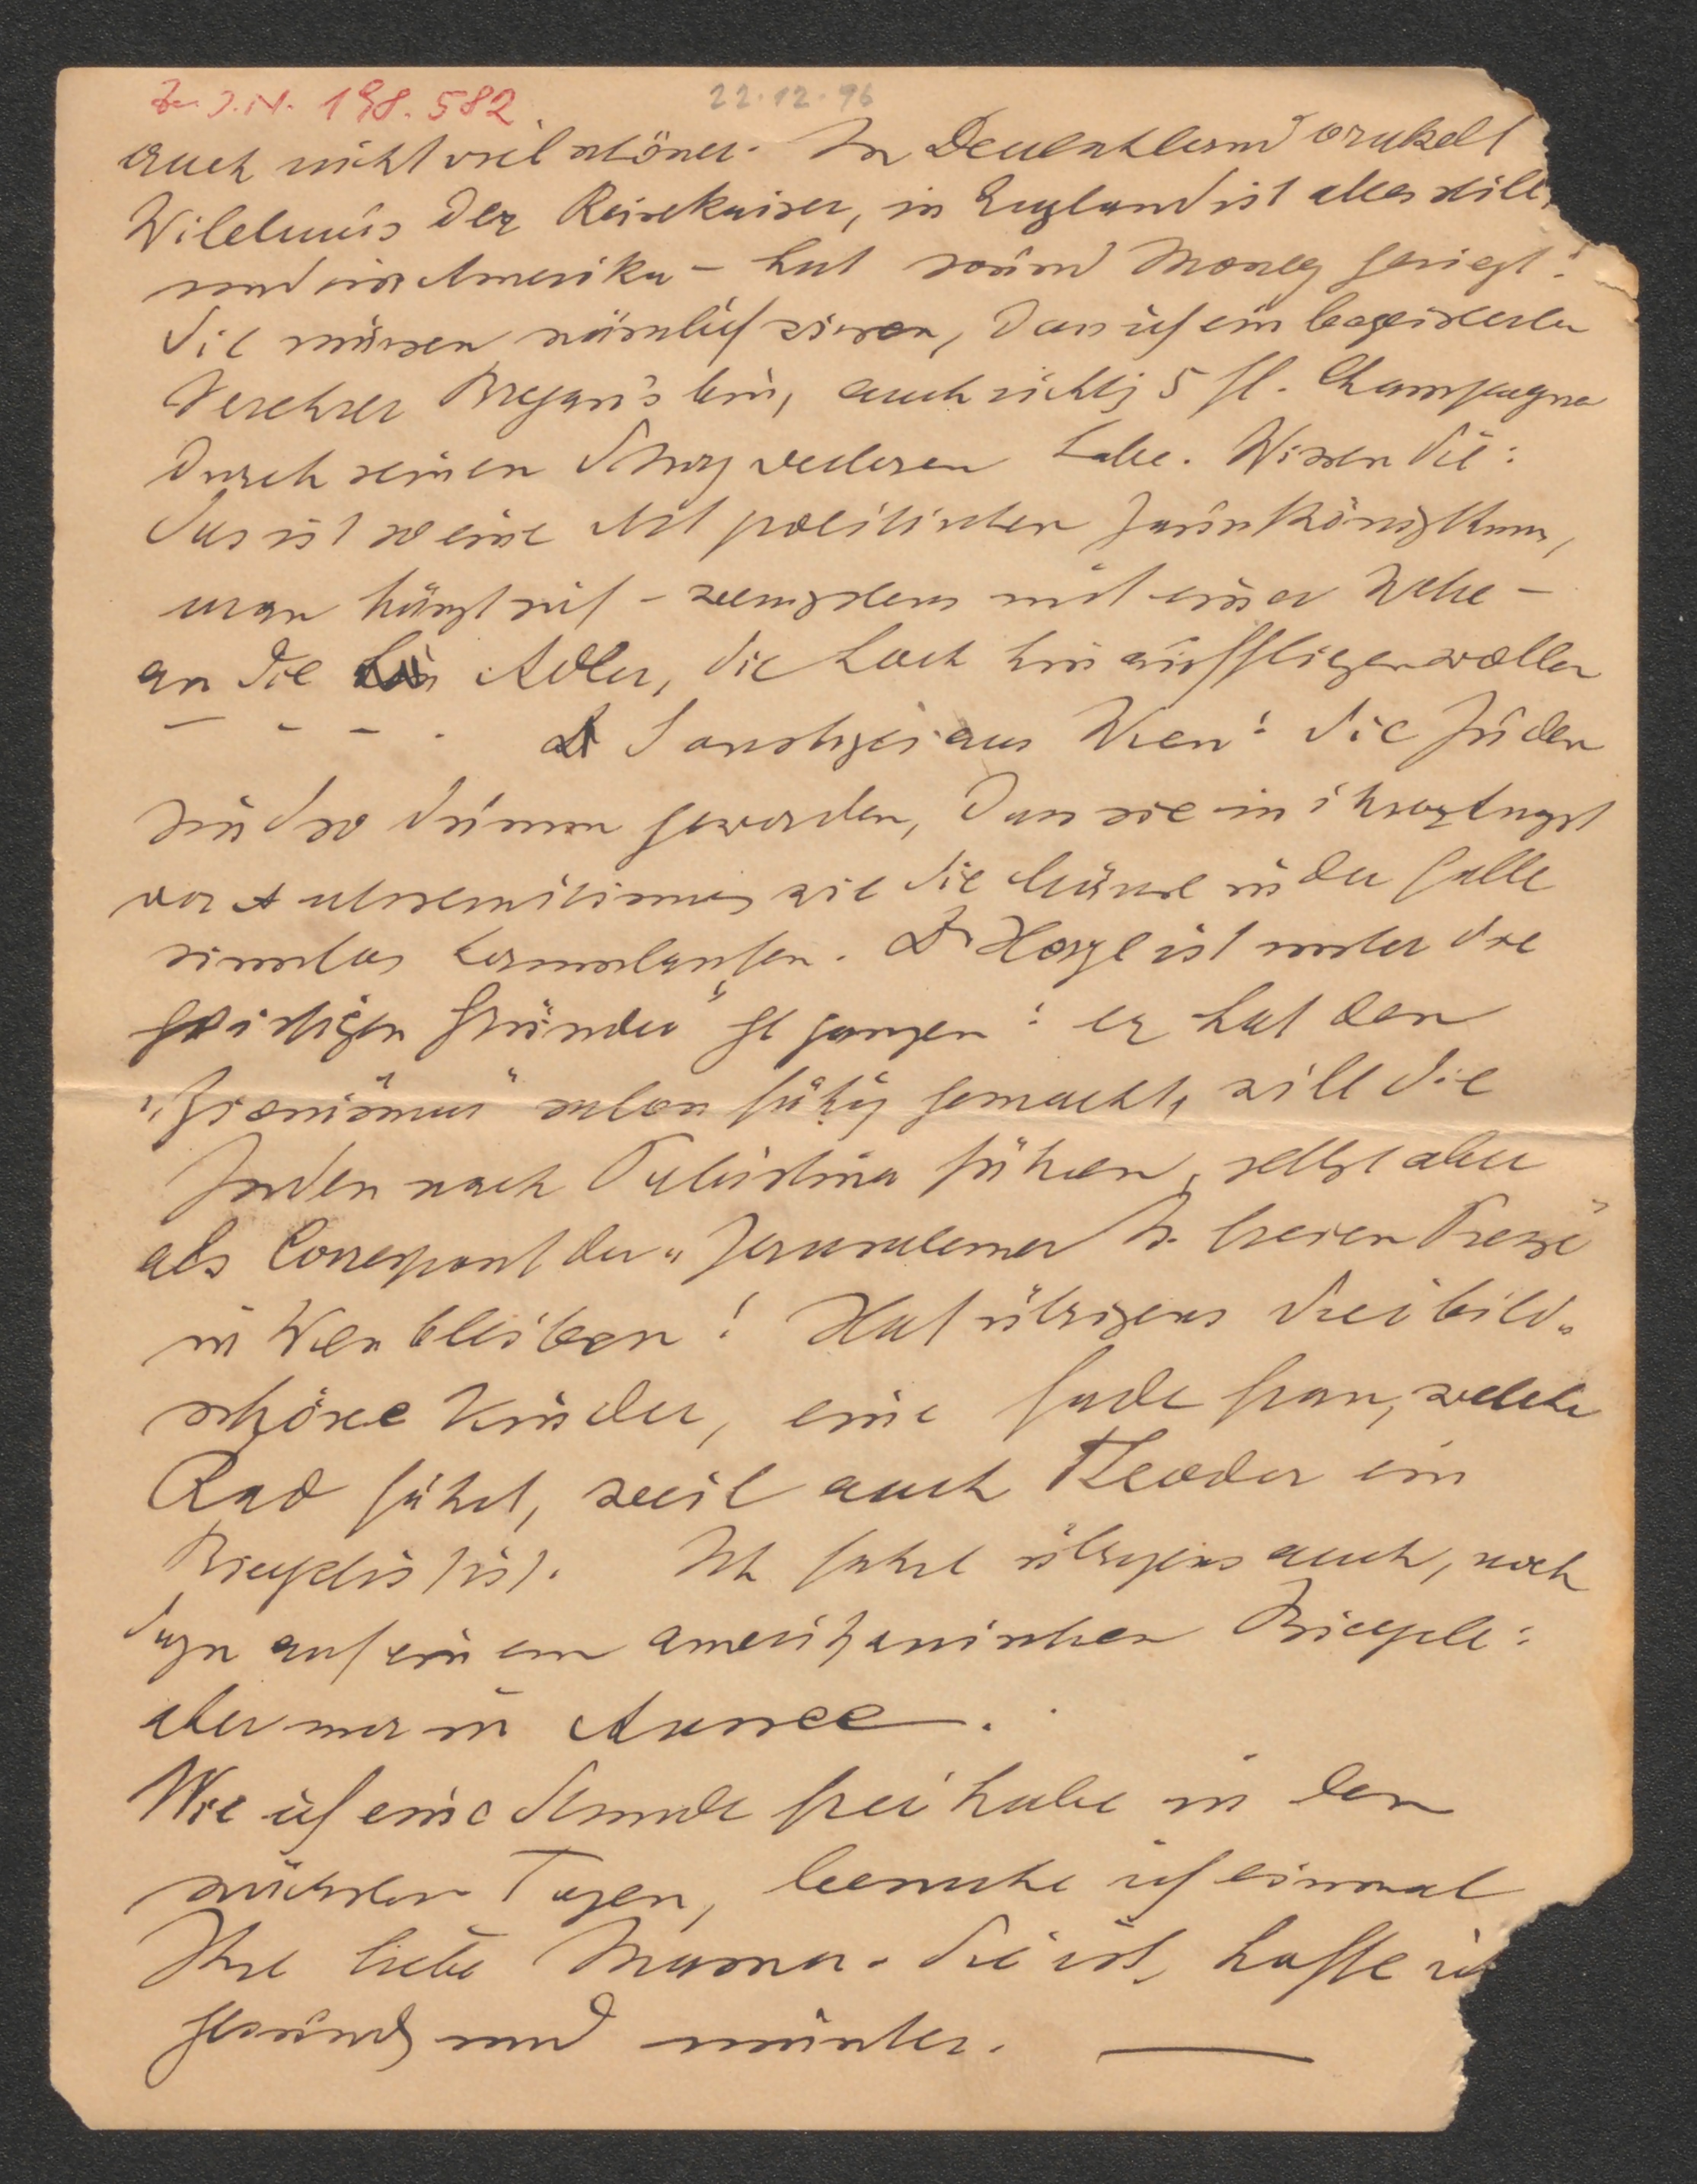 Zu J.N. 198.582
22.12.96
auch nicht viel schöner. In Deutschland orakelt
Wilelmus der Reisekaiser, in England ist alles still,
und in Amerika – hat sound Money gesiegt!
Sie müssen nämlich wissen, dass ich ein begeisterter
Verehrer Bryan's bin, auch richtig 5 fl. Champagner
durch seinen verloren habe. Wissen Sie:
das ist so eine Art politischen Zaunkönigthum,
man hängt sich – wenigstens mit einer Wette –
an die Adler, die hoch hinauffliegen wollen
– – – . Sonstiges aus Wien: die Juden
sind so dumm geworden, dass sie in ihrer Angst
vor Antisemitismus wie die Mäuse in der Falle
sinnlos herumlaufen. Dr Herzl ist unter die
"geistigen Gründer" gegangen: er hat den
"Zionismus" salonfähig gemacht, will die
Juden nach Palästina führen, selbst aber
als Correspont der "Jerusalemer N. freien Presse"
in Wien bleiben! Hat übrigens drei bild-
schöne Kinder, eine fade Frau, welche
Rad fährt, weil auch Theodor ein
Bicyclist ist. Ich fahre übrigens auch, noch
dazu auf einem amerikanischen Bicycle:
aber nur in Aussee.
Wie ich eine Stunde frei habe in den
nächsten Tagen, besuche ich einmal
Ihre liebe Mama. Sie ist, hoffe ich
gesund und munter.